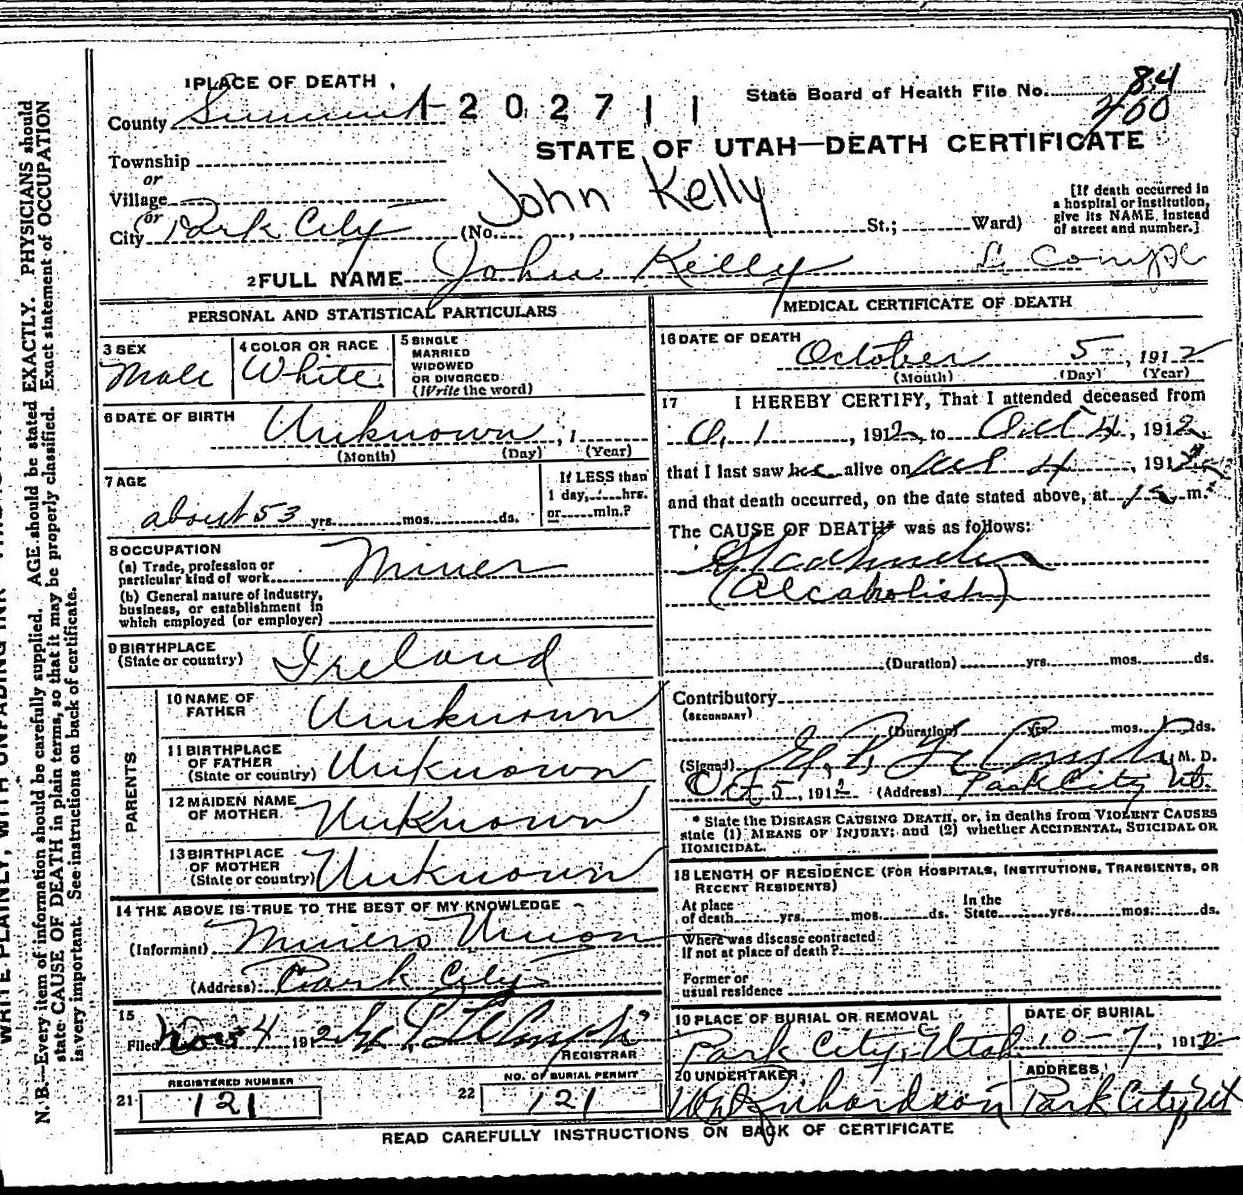 1 PLACE OF DEATH
County Summit 1202711 State Board of Health File No. 84
400
Township
STATE OF UTAH—DEATH CERTIFICATE
or
Village
or
John Kelly
[If death occurred in a hospital or institution, give its NAME, instead of street and number.]
City Park City (No. , St.; Ward)
2 FULL NAME John Kelly
PERSONAL AND STATISTICAL PARTICULARS
3 SEX
Male
4 COLOR OR RACE
White
5 SINGLE
MARRIED
WIDOWED
OR DIVORCED
(Write the word)
6 DATE OF BIRTH
Unknown , 1
(Month) (Day) (Year)
7 AGE
about 53 yrs. mos. ds.
If LESS than
1 day, hrs.
or min.?
8 OCCUPATION
(a) Trade, profession or
particular kind of work Miner
(b) General nature of industry,
business, or establishment in
which employed (or employer)
9 BIRTHPLACE
(State or country) Ireland
PARENTS
10 NAME OF
FATHER Unknown
11 BIRTHPLACE
OF FATHER
(State or country) Unknown
12 MAIDEN NAME
OF MOTHER Unknown
13 BIRTHPLACE
OF MOTHER
(State or country) Unknown
14 THE ABOVE IS TRUE TO THE BEST OF MY KNOWLEDGE
(Informant) Miners Union
(Address) Park City
15
Filed Nov 4 1912
REGISTRAR
REGISTERED NUMBER
21 121
NO. OF BURIAL PERMIT
22 121
MEDICAL CERTIFICATE OF DEATH
16 DATE OF DEATH
October 5, 1912
(Month) (Day) (Year)
17 I HEREBY CERTIFY, That I attended deceased from
O. 1, 1912, to Oct 4, 1912,
that I last saw alive on 4, 191
and that death occurred, on the date stated above, at m.
The CAUSE OF DEATH* was as follows:
(Alcoholish)
(Duration) yrs. mos. ds.
Contributory
(SECONDARY)
(Duration) yrs. mos. ds.
(Signed) M. D.
Oct 5, 1912 (Address) Park City Ut.
* State the DISEASE CAUSING DEATH, or, in deaths from VIOLENT CAUSES
state (1) MEANS OF INJURY; and (2) whether ACCIDENTAL, SUICIDAL OR
HOMICIDAL.
18 LENGTH OF RESIDENCE (FOR HOSPITALS, INSTITUTIONS, TRANSIENTS, OR
RECENT RESIDENTS)
At place
of death yrs. mos. ds.
In the
State yrs. mos. ds.
Where was disease contracted
if not at place of death?
Former or
usual residence
19 PLACE OF BURIAL OR REMOVAL
Park City, Utah
DATE OF BURIAL
10-7, 1912
20 UNDERTAKER
Wm Richardson
ADDRESS
Park City, Ut
READ CAREFULLY INSTRUCTIONS ON BACK OF CERTIFICATE
N. B.—Every item of information should be carefully supplied. AGE should be stated EXACTLY. PHYSICIANS should
state CAUSE OF DEATH in plain terms, so that it may be properly classified. Exact statement of OCCUPATION
is very important. See instructions on back of certificate.